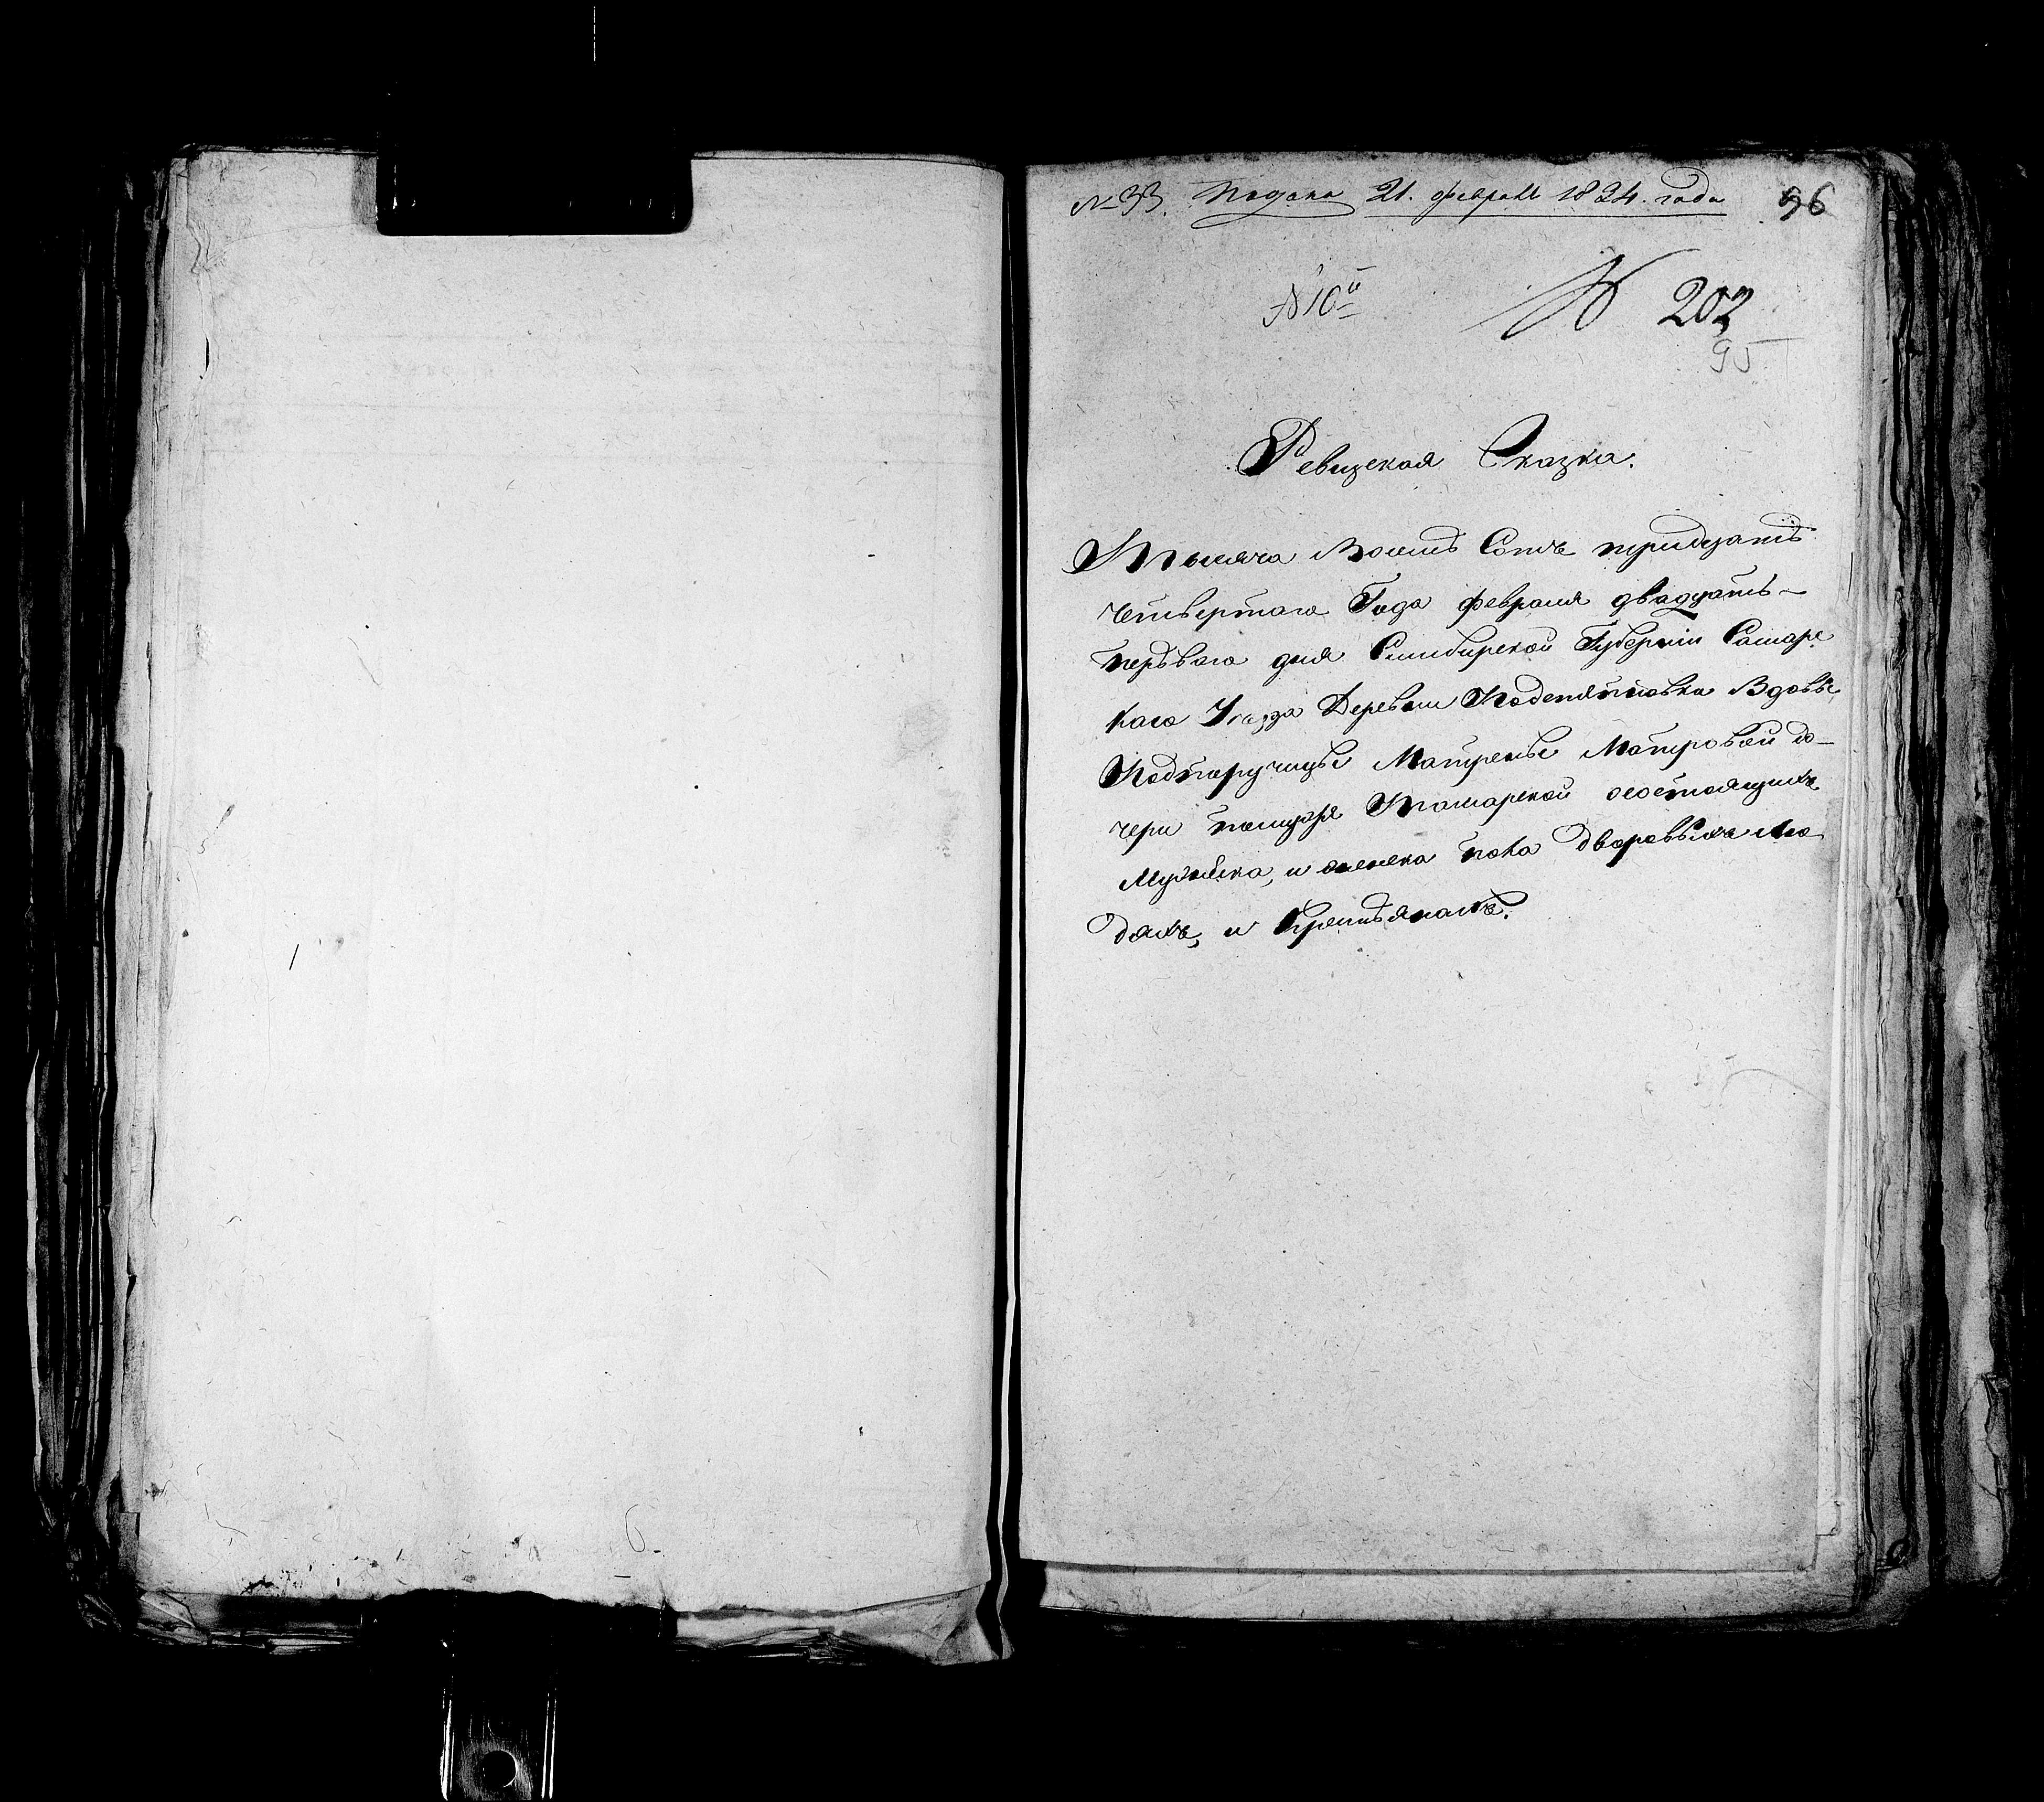 № 33. Подана 21. февраля 1834. года
96
№ 10й
№ 202
95
Ревизская Сказка.
Тысяча Восемь Сотъ тридцать
четвертаго Года февраля двадцать
перваго дня Симбирской Губерніи Самарс
каго Уезда Деревни Вдовы
Подпоручицы Матрены Петровой до-
чери Татарской состоящихъ
Мужеска, и женска пола Дворовыхъ лю
дяхъ, и Крестьянахъ.